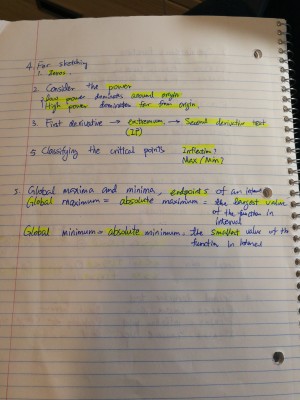 4. For sketching
1. Zeros.
2. Consider the power
Low power dominates around origin
High power dominates for from origin.
3. First derivative → extremum → Second derivative test
(IP)
5 Classifying the critical points Inflexion?
Max/Min?
5. Global maxima and minima, endpoints of an
Global maximum = absolute maximum = the largest value
of the function in
interval
Global minimum = absolute minimum = the smallest value of the
function in interval